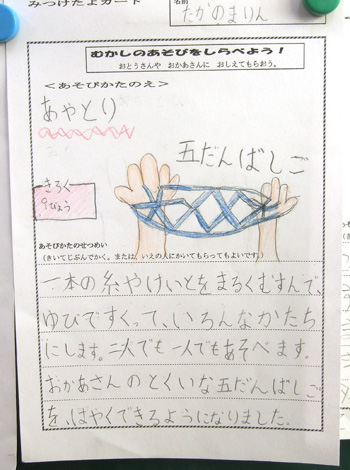 みつけたよカード
名前
たかのまりん
むかしのあそびをしらべよう！
おとうさんや おかあさんに おしえてもらおう。
＜あそびかたのえ＞
あやとり
五だんばしご
きろく
9びょう
あそびかたのせつめい
(きいてじぶんでかく。または、いえの人にかいてもらってもよいです。)
一本の糸やけいとをまるくむすんで、
ゆびですくって、いろんなかたち
にします。二人でも一人でもあそべます。
おかあさんのとくいな五だんばしご
を、はやくできるようになりました。